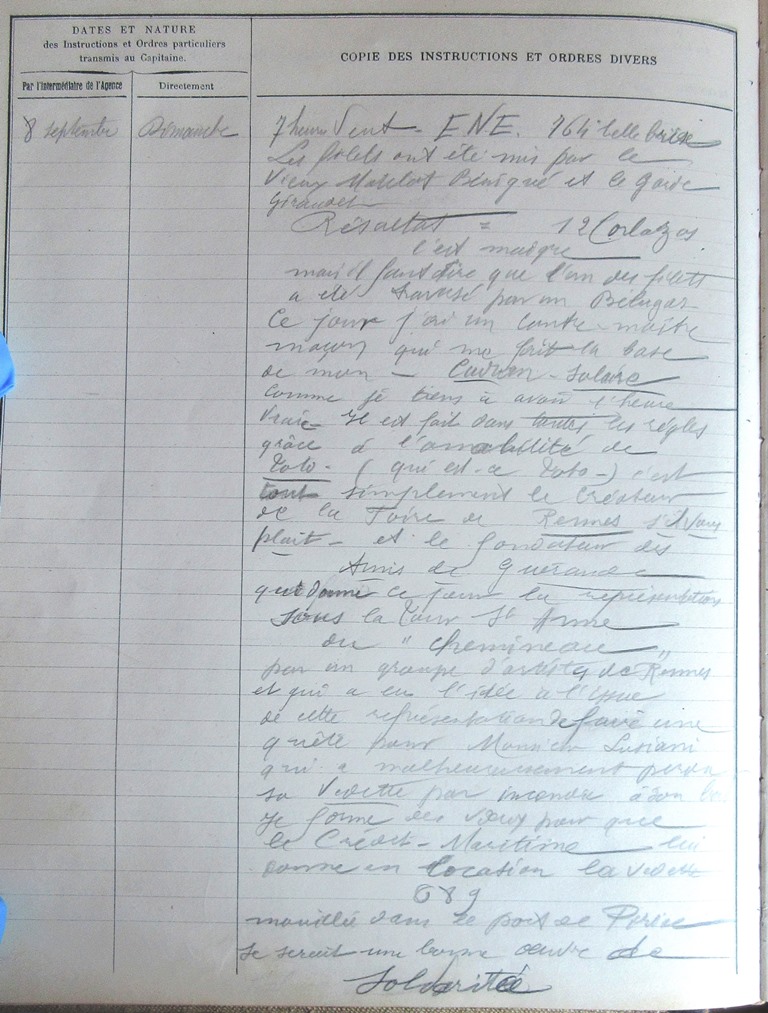 DATES ET NATURE
des Instructions et Ordres particuliers
transmis au Capitaine.
Par l'Intermédiaire de l'Agence
Directement
COPIE DES INSTRUCTIONS ET ORDRES DIVERS
8 septembre Dimanche
7 heures Vent - ENE. 764 belle brise
Les filets ont été mis par le
Vieux Matelot Bénigué et le garde
Giraudet
Résultat = 12 Corlazos
c'est maigre
mais il faut dire que l'un des filets
a été traversé par un Bélugas
Ce jour j'ai un contre-maître
maçon qui me fait la base
de mon - Cadran-solaire
comme je tiens à avoir l'heure
vraie - Il est fait dans toutes les règles
grâce à l'amabilité de
Toto - ( qui est-ce Toto - ) c'est
tout simplement le Créateur
de la Foire de Rennes s'il vous
plait - et le fondateur des
Amis de Guérande
qui donne ce jour la représentation
sous la Tour St Anne
du " chemineau "
par un groupe d'artistes de Rennes
et qui a eu l'idée à l'issue
de cette représentation de faire une
quête pour Monsieur Lusiani
qui a malheureusement perdu
sa Vedette par incendie à son
Je forme des vœux pour que
le Crédit-Maritime lui
donne en location la vedette
689
mouillée dans le port de
se serait une bonne œuvre de
Solidarité